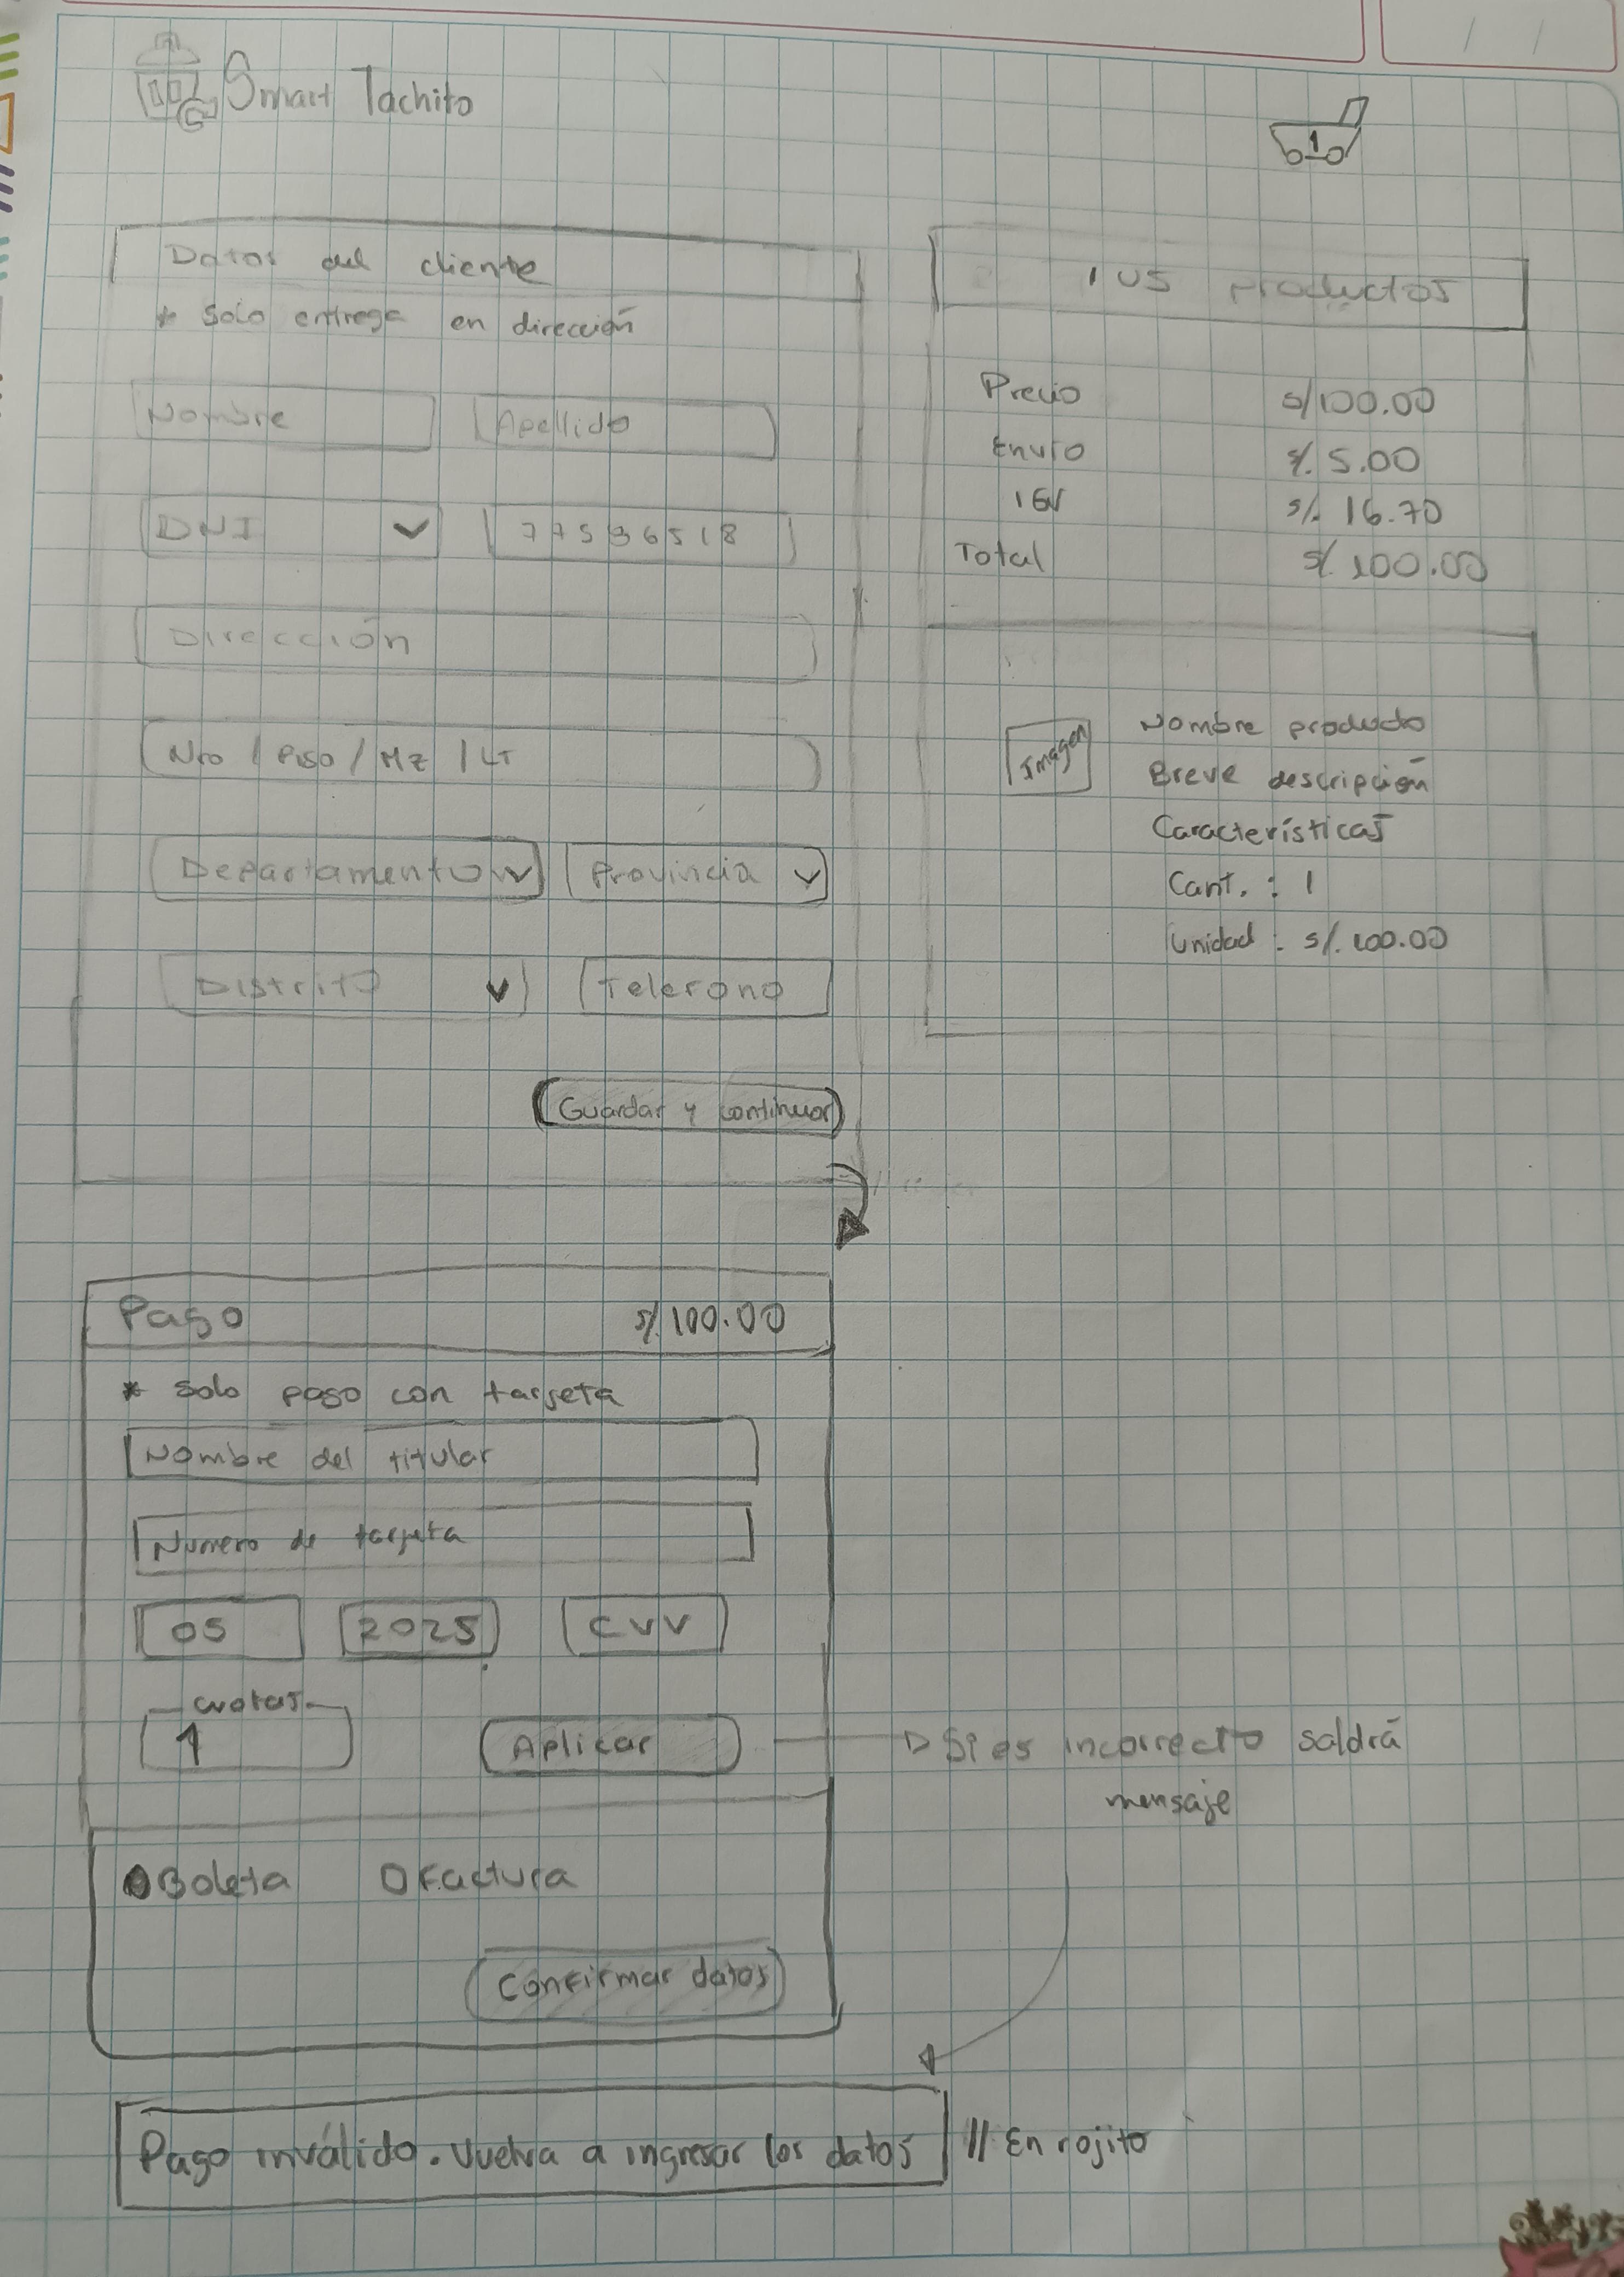 Smart Tachito
1
Datos del cliente
* Solo entrega en dirección
Nombre Apellido
DNI 77596518
Dirección
Nro / Piso / Mz / LT
Departamento Provincia
Distrito Telefono
Guardar y continuar
Tus productos
Precio S/100.00
Envío S/. 5.00
IGV S/. 16.70
Total S/. 100.00
Imagen
Nombre producto
Breve descripción
Características
Cant. : 1
Unidad : S/. 100.00
Pago S/. 100.00
* Solo pago con tarjeta
Nombre del titular
Numero de tarjeta
05 2025 CVV
cuotas
1 Aplicar
Si es incorrecto saldrá
mensaje
Boleta Factura
Confirmar datos
Pago inválido. Vuelva a ingresar los datos // En rojito